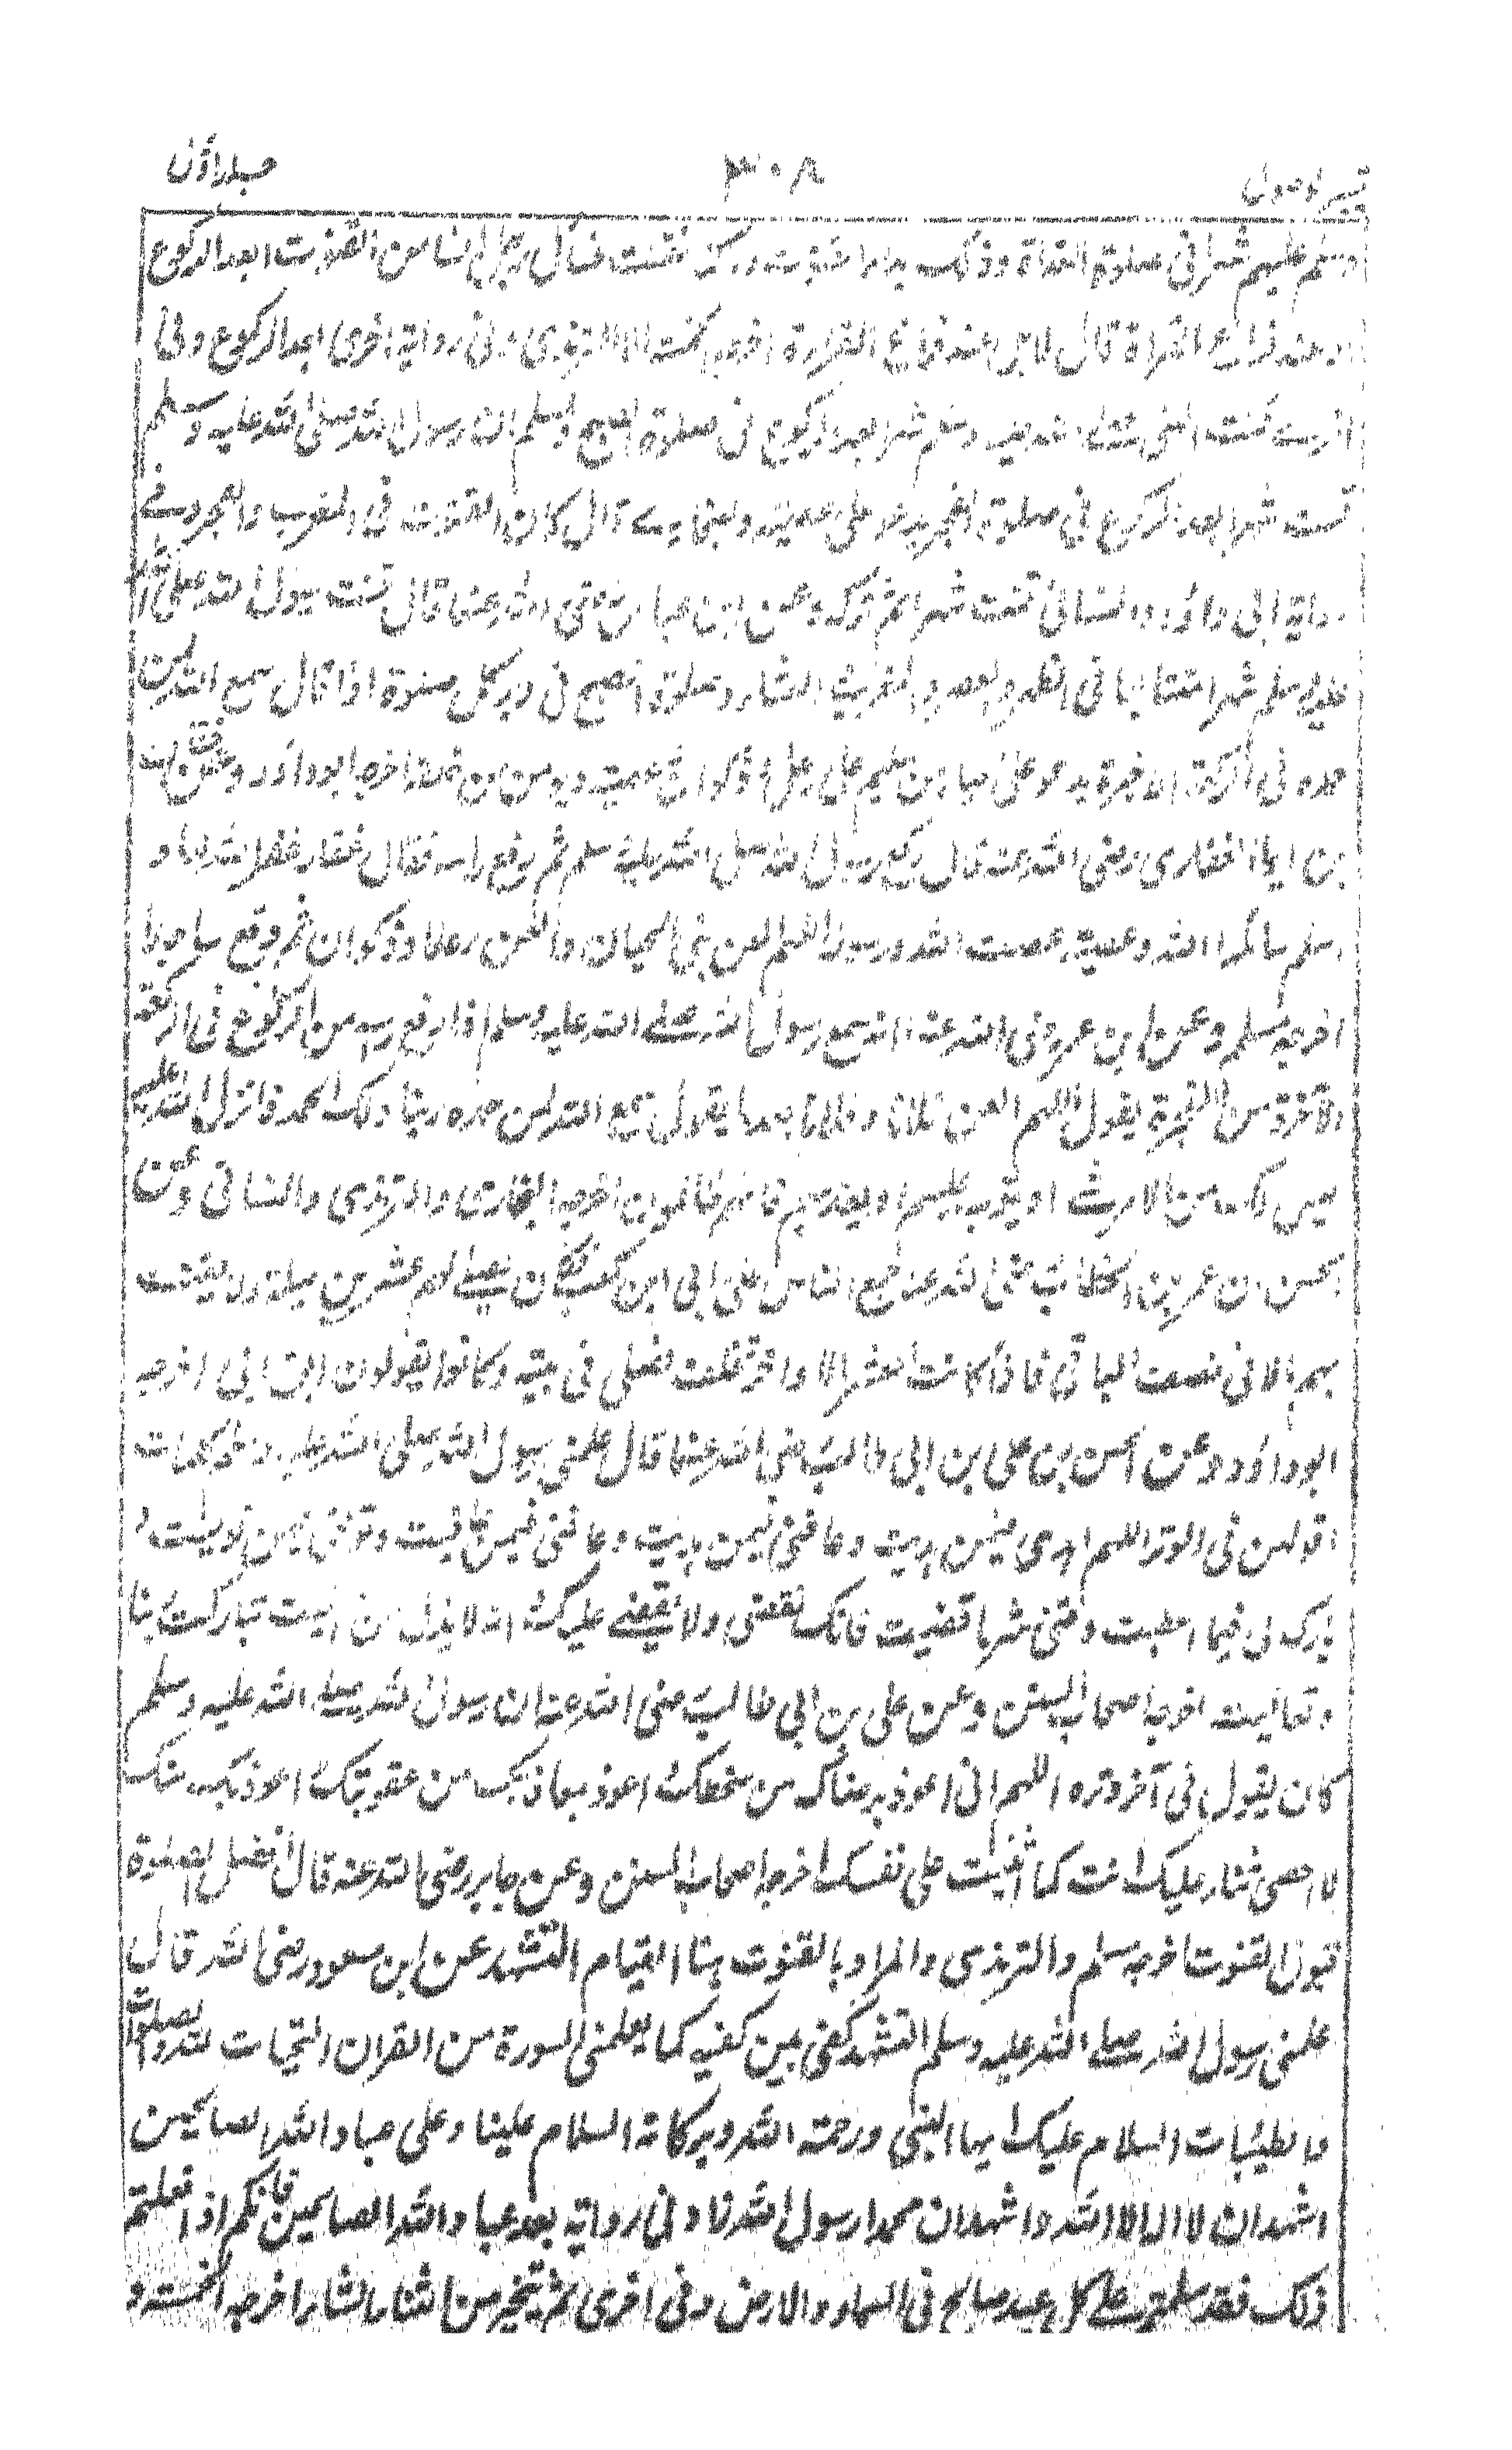 تيسير الوصول ٣٠٨ جلد اول
وسلم عليهم شهرا فى صلوة الغداة وذلك بدء القنوت وما كنا نقنت فسأل رجل انسا عن القنوت ابعد الركوع
او عند فراغ القراءة قال لا بل عند فراغ القراءة اخرجه الخمسة الا الترمذى وفى رواية اخرى بعد الركوع وفى
اخرى قنت النبى صلے الله عليه وسلم شهرا بعد الركوع فى صلوة الصبح ولمسلم ان رسول الله صلى الله عليه وسلم
قنت شهرا بعد الركوع فى صلوة الفجر يدعو على عصية وللبخارى قال كان القنوت فى المغرب والفجر وفے
رواية ابى داؤد والنسائى قنت شهرا ثم تركه وعن ابن عباس رضى الله عنهما قال قنت رسول الله صلى الله
عليه وسلم شهرا متتابعا فى الظهر والعصر والمغرب والعشاء وصلوة الصبح فى دبر كل صلوة اذا قال سمع الله لمن
حمده فى الركعة الاخرة يدعو على احياء من سليم على رعل وذكوان وعصية ويؤمن من خلفه اخرجه ابو داؤد وعن خفاف
بن ايماء الغفارى رضى الله عنه قال ركع رسول الله صلى الله عليه وسلم ثم رفع راسه فقال غفار غفر الله لها و
اسلم سالمها الله وعصية عصت الله ورسوله اللهم العن بنى لحيان والعن رعلا وذكوان ثم وقع ساجدا
اخرجه مسلم وعن ابن عمر رضى الله عنه انه سمع رسول الله صلے الله عليه وسلم اذا رفع راسه من الركوع فى الركعة
الآخرة من الفجر يقول اللهم العن فلانا وفلانا بعد ما يقول سمع الله لمن حمده ربنا ولك الحمد فانزل الله عليه
ليس لك من الامر شئ او يتوب عليهم او يعذبهم فانهم ظالمون اخرجه البخارى والترمذى والنسائى وعن
الحسن ان عمر بن الخطاب رضى الله عنه جمع الناس على ابى ابن كعب فكان يصلے لهم عشرين ليلة ولا يقنت
بهم الا فى نصف الباقى فاذا كانت العشر الاواخر تخلف فصلى فى بيته وكانوا يقولون ابق ابى اخرجه
ابو داؤد وعن الحسن بن على بن ابى طالب رضى الله عنهما قال علمنى رسول الله صلى الله عليه وسلم كلمات
اقولهن فى الوتر اللهم اهدنى فيمن هديت وعافنى فيمن عافيت وتولنى فيمن توليت و
بارك لى فيما اعطيت وقنى شر ما قضيت فانك تقضى ولا يقضے عليك انه لا يذل من واليت تباركت ربنا
وتعاليت اخرجه اصحاب السنن وعن على بن ابى طالب رضى الله عنه ان رسول الله صلے الله عليه وسلم
كان يقول فى آخر وتره اللهم انى اعوذ برضاك من سخطك واعوذ بمعافاتك من عقوبتك واعوذ بك منك
لا احصى ثناء عليك انت كما اثنيت على نفسك اخرجه اصحاب السنن وعن جابر رضى الله عنه قال افضل الصلوة
طول القنوت اخرجه مسلم والترمذى والمراد بالقنوت هنا القيام التشهد عن ابن مسعود رضى الله قال
علمنى رسول الله صلے الله عليه وسلم التشهد كفى بين كفيه كما يعلمنى السورة من القران التحيات لله والصلوات
والطيبات السلام عليك ايها النبى ورحمة الله وبركاته السلام علينا وعلى عباد الله الصالحين
اشهد ان لا اله الا الله واشهد ان محمدا رسول الله زاد فى رواية بعد عباد الله الصالحين فانكم اذا فعلتم
ذلك فقد سلمتم على كل عبد صالح فى السماء والارض وفى اخرى ثم تخير من الثناء ما شاء اخرجه الخمسة و